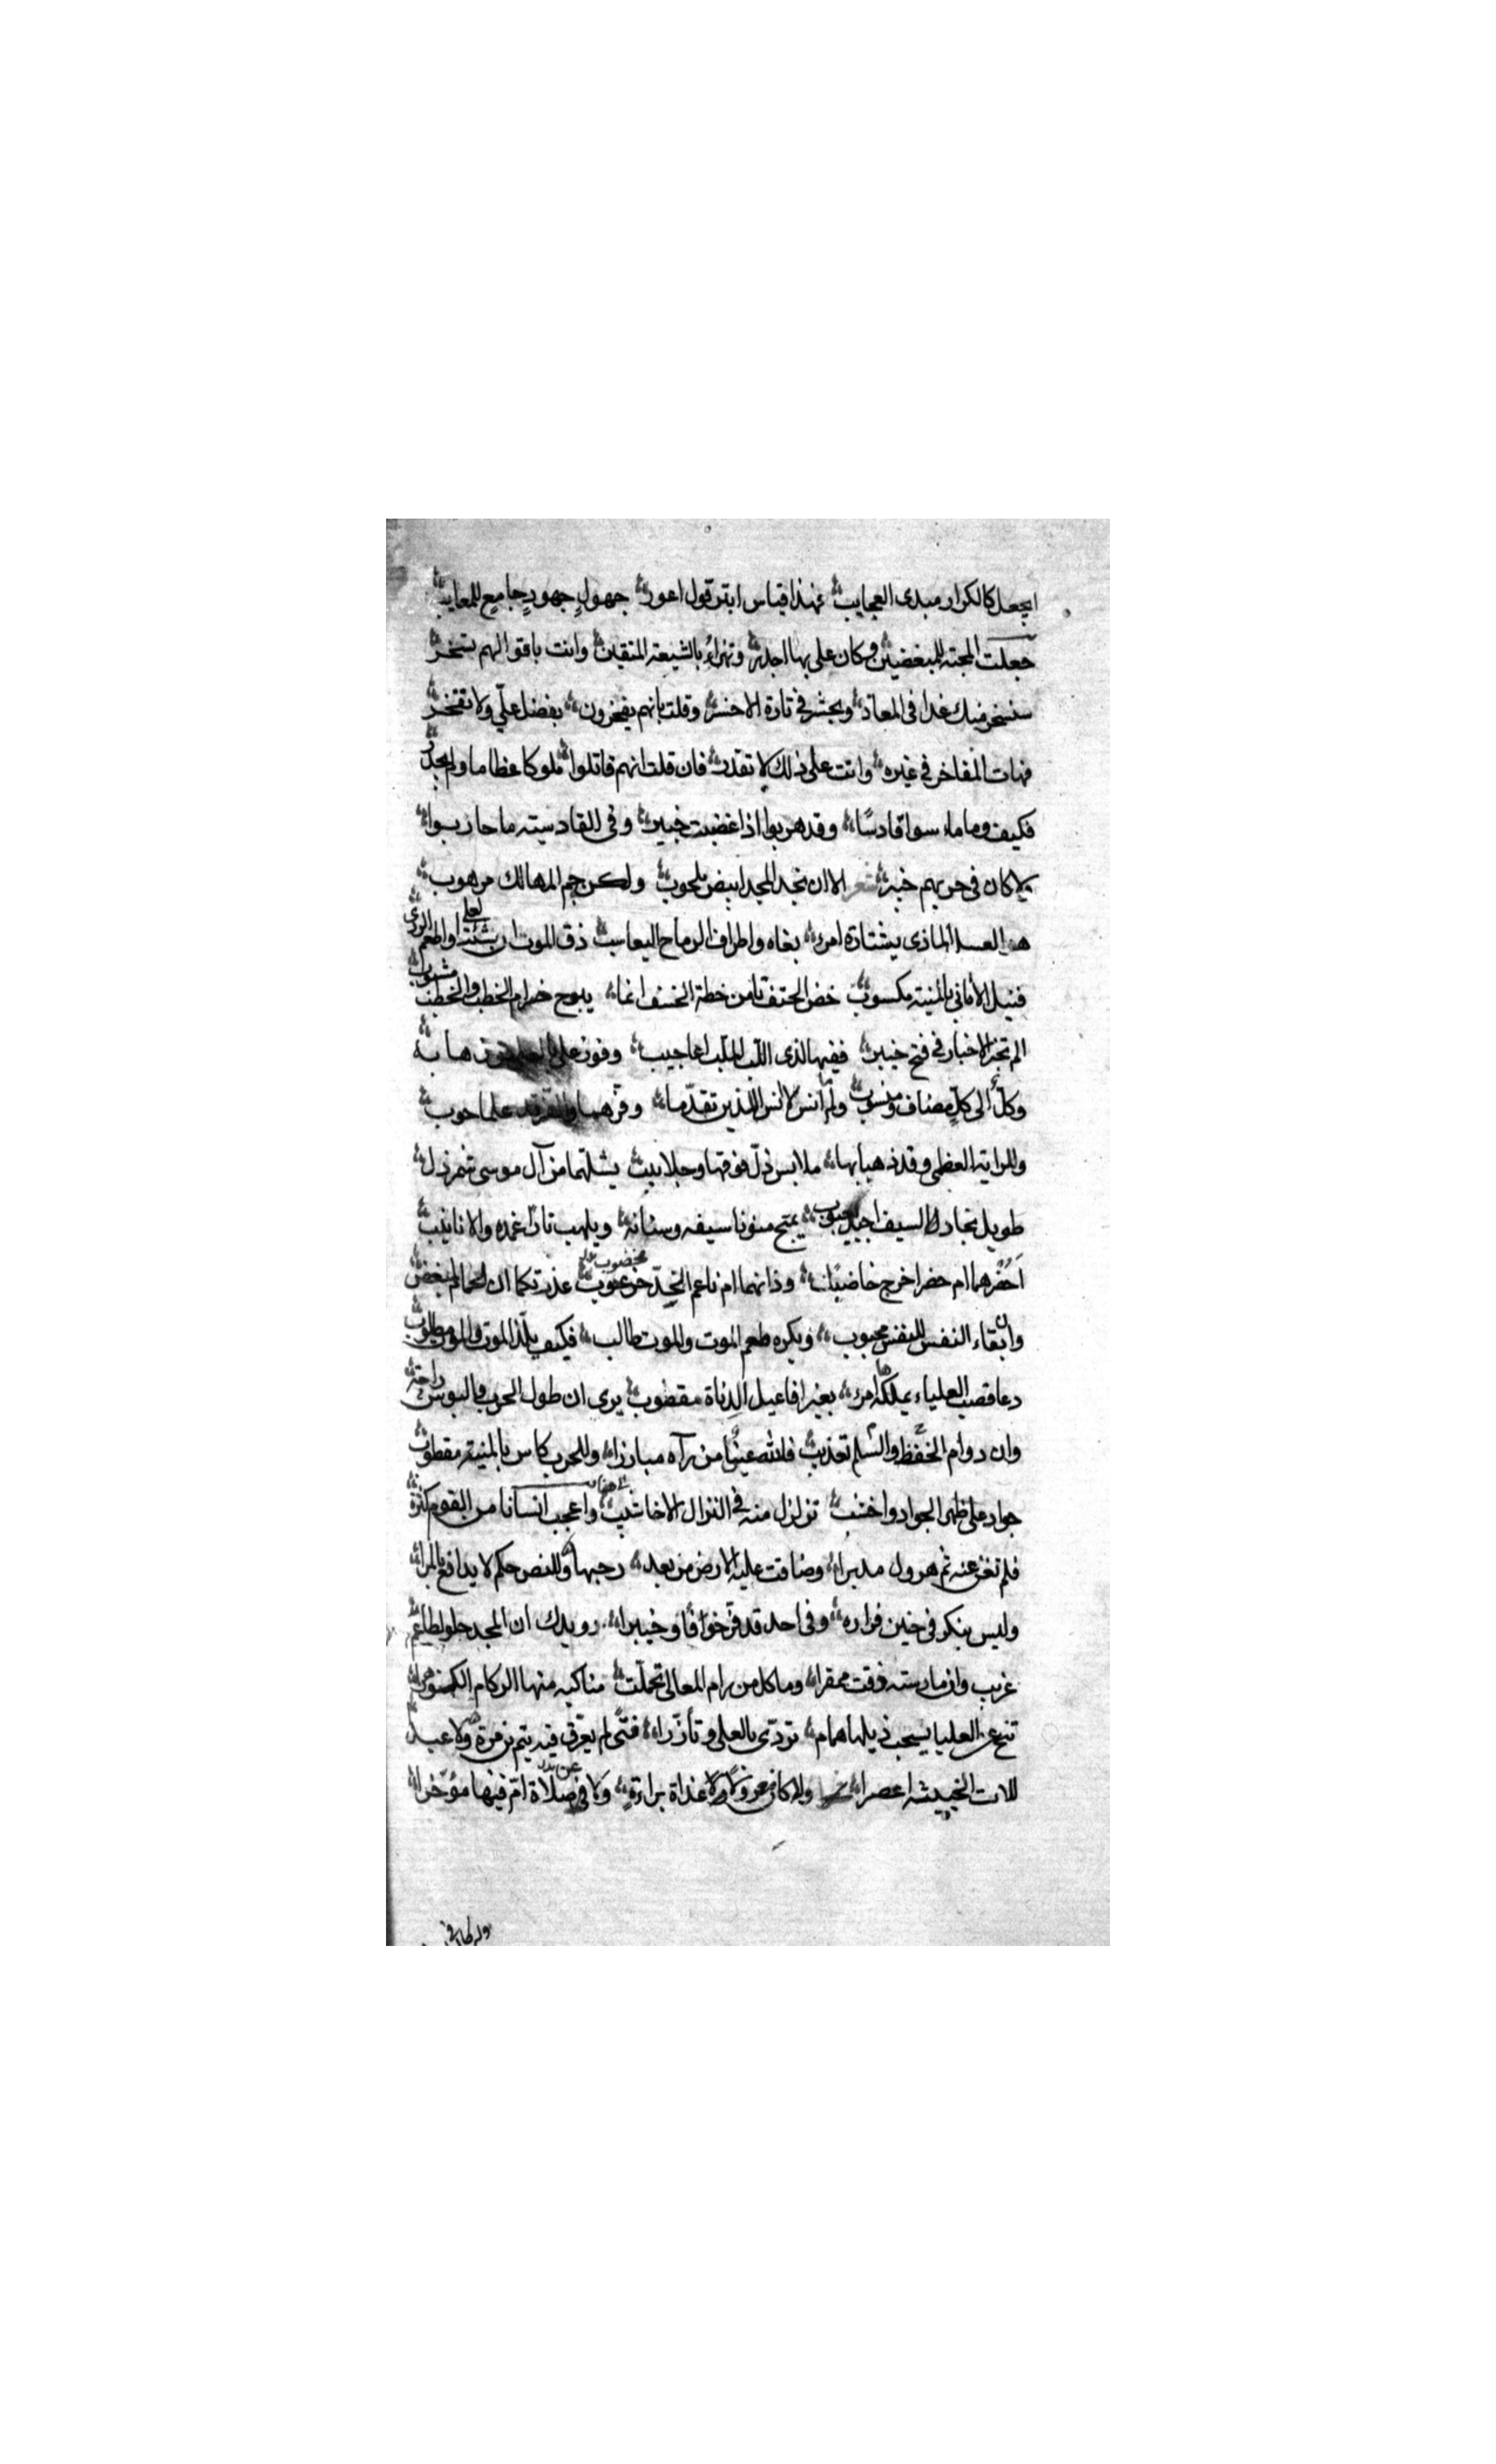 ايجعل كالكرار مبدى العجايب فهذا قياس ابتر قول اعور جهول جهود جامع للمعايب
جعلت المحبة للمبغضين وكان على بها اجدر وتهزاء بالشيعة المتقين وانت باقوالهم تسخر
سنسخر منك غدا فى المعاد ويحشر فى تارة الاخسر وقلت بانهم يفخرون بفضل علىّ ولا تفخر
فهات المفاخر فى غيره وانت على ذلك لا تقدر فان قلت انهم قاتلوا ملوكا عظاما ولم يجدر
فكيف وماماء سوا قادسًا وقد هربوا اذا غضبت خيبر وفى القادسيته ما حاربوا
ولا كان فى حربهم خبر شعر الا ان نجد المجد ابيض ملحوب ولكن جم المهالك مرهوب
هو العسل الماذى يشتاره امرء بغاه واطراف الرماح اليعاسيب ذق الموت ان شئت العلى واطعم الردى
فنيل الامانى بالمنية مكسوب خض الحتف تامن خطة الخسف انما يبوح ضرام الخطب والخطب مشبوب
الم تخبر الاخبار فى فتح خيبر ففيها لذى اللب الملب اعاجيب وفوز على بالعلى فوزها به
وكلّ الى كلّ مضاف ومنسوب ولم انس لا انس اللذين تقدّما وفرّهما والفرّ قد علما حوب
وللراية العظمى وقد ذهبا بها ملابس ذلّ فوقها وجلابيب يشلّهما من آل موسى شمردل
طويل نجاد السيف اجيد يعبوب يمج منونا سيفه وسنانه ويلهب نارا غمده والانابيب
احضرهما ام حضر اخرج خاضبا وذانهما ام ناعم الخدّ مخضوب عذرتكما ان الحمام لمبغض
وان بقاء النفس للنفس محبوب ويكره طعم الموت والموت طالب فكيف يلذ الموت والموت مطلوب
دعا قصب العلياء يملكها امرء بغير افاعيل الدناة مقضوب يرى ان طول الحرب والبوس راحة
وان دوام الخفض والسلم تعذيب فلله عينا من رآه مبارزا وللحرب كاس بالمنية مقطوب
جواد على ظهر الجواد واخشب تزلزل منه فى النزال الاخاشيب واعجب انسانا من القوم كثرة
فلم تغن عنه ثم هرول مدبرا وضاقت عليه الارض من بعد رحبها وللنص حكم لا يدافع بالمرا
وليس بنكر فى حنين فراره وفى احد قد فرّ خوفا وخيبرا رويدك ان المجد حلو لطاعم
غريب وان مارسته ذقت ممقرا وما كل من رام المعالى تحملت مناكبه منها الركام الكنهورا
تنح عن العليا يسحب ذيلها همام تردّى بالعلى وتأزّرا فتًى لم يعرّق فيه تيم بن مرة ولا عبد
اللات الخبيثه اعصرا ولا كان معزولا غداة براءة ولا عن صلاة امّ فيها مؤخرا